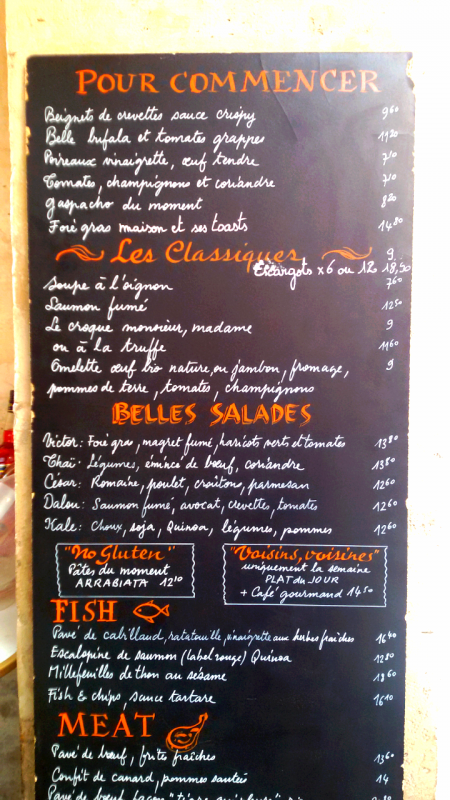 POUR COMMENCER
Beignets de crevettes sauce crispy 9⁶⁰
Belle bufala et tomates grappes 11²⁰
Poireaux vinaigrette, œuf tendre 7¹⁰
Tomates, champignons et coriandre 7¹⁰
Gaspacho du moment 8²⁰
Foie gras maison et ses toasts 14⁸⁰
Les Classiques 9
Escargots x 6 ou 12 18,50
Soupe à l'oignon 7⁶⁰
Saumon fumé 12⁵⁰
Le croque monsieur, madame 9
ou à la truffe 11⁶⁰
Omelette œuf bio nature, ou jambon, fromage, 9
pommes de terre, tomates, champignons
BELLES SALADES
Victor: Foie gras, magret fumé, haricots verts et tomates 13⁸⁰
Thaï: Légumes, émincé de bœuf, coriandre 13⁸⁰
Cesar: Romaine, poulet, croûtons, parmesan 12⁶⁰
Dalou: Saumon fumé, avocat, crevettes, tomates 12⁶⁰
Kale: Choux, soja, Quinoa, légumes, pommes 12⁶⁰
"No Gluten"
Pâtes du moment
ARRABIATA 12¹⁰
"Voisins, voisines"
uniquement la semaine
PLAT du JOUR
+ Café gourmand 14⁵⁰
FISH
Pavé de cabillaud, ratatouille, vinaigrette aux herbes fraîches 16⁴⁰
Escalopine de saumon (label rouge) Quinoa 12⁸⁰
Millefeuilles de thon au sésame 18⁶⁰
Fish & chips, sauce tartare 16¹⁰
MEAT
Pavé de bœuf, frites fraîches 13⁶⁰
Confit de canard, pommes sautées 14
Pavé de bœuf façon